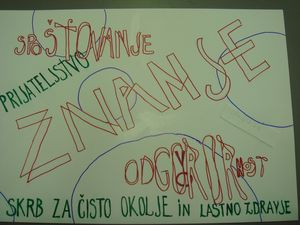 SPOŠTOVANJE
PRIJATELJSTVO
ZNANJE
ODGOVORNOST
SKRB ZA ČISTO OKOLJE IN LASTNO ZDRAVJE